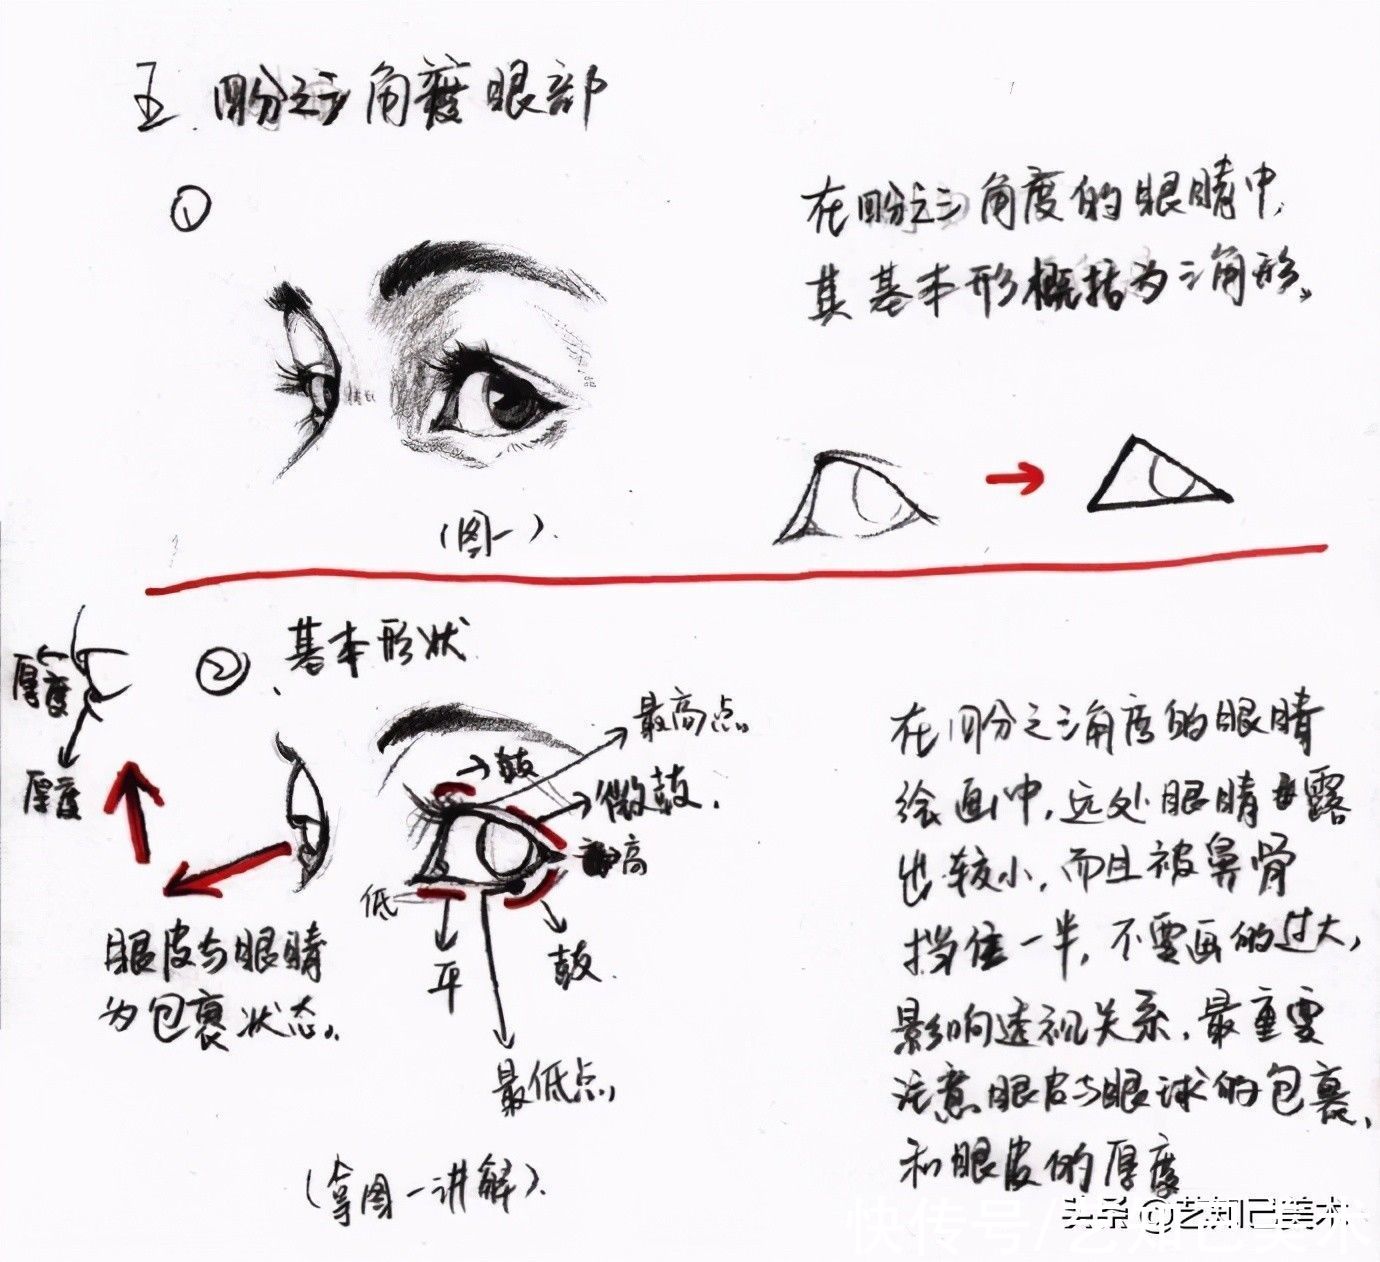 五、四分之三角度眼部
①
在四分之三角度的眼睛中,
其基本形概括为三角形。
(图一).
② 、基本形状
厚度
厚度
最高点。
鼓
微鼓.
高
低
平
鼓.
最低点,
眼皮与眼睛
为包裹状态。
(拿图一讲解).
在四分之三角度的眼睛
绘画中,远处眼睛露
出较小,而且被鼻骨
挡住一半,不要画的过大,
影响透视关系,最重要
注意眼皮与眼球的包裹,
和眼皮的厚度
头条 @艺知己美术
快传号/艺知己美术